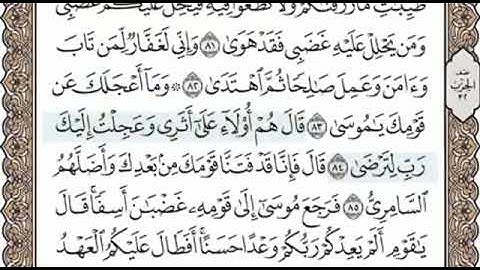 طَيِّبَٰتِ مَا رَزَقۡنَٰكُمۡ وَلَا تَطۡغَوۡاْ فِيهِ فَيَحِلَّ عَلَيۡكُمۡ غَضَبِيۖ
وَمَن يَحۡلِلۡ عَلَيۡهِ غَضَبِي فَقَدۡ هَوَىٰ ٨١ وَإِنِّي لَغَفَّارٞ لِّمَن تَابَ
وَءَامَنَ وَعَمِلَ صَٰلِحٗا ثُمَّ ٱهۡتَدَىٰ ٨٢ ۞ وَمَآ أَعۡجَلَكَ عَن
قَوۡمِكَ يَٰمُوسَىٰ ٨٣ قَالَ هُمۡ أُوْلَآءِ عَلَىٰٓ أَثَرِي وَعَجِلۡتُ إِلَيۡكَ
رَبِّ لِتَرۡضَىٰ ٨٤ قَالَ فَإِنَّا قَدۡ فَتَنَّا قَوۡمَكَ مِنۢ بَعۡدِكَ وَأَضَلَّهُمُ
ٱلسَّامِرِيُّ ٨٥ فَرَجَعَ مُوسَىٰٓ إِلَىٰ قَوۡمِهِۦ غَضۡبَٰنَ أَسِفٗاۚ قَالَ
يَٰقَوۡمِ أَلَمۡ يَعِدۡكُمۡ رَبُّكُمۡ وَعۡدًا حَسَنًاۚ أَفَطَالَ عَلَيۡكُمُ ٱلۡعَهۡدُ